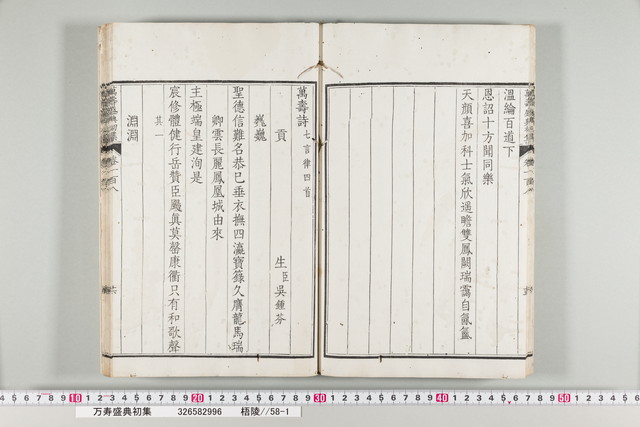 溫綸百道下
恩詔十方聞同樂
天顏喜加科士氣欣遥瞻雙鳳闕瑞靄自氤氳
萬壽詩七言律四首
貢生臣吳鍾芬
巍巍
聖德信難名恭已垂衣撫四瀛寶籙久膺龍馬瑞
卿雲長麗鳳凰城由來
主極端皇建洵是
宸修體健行岳贊臣颺眞莫罄康衢只有和歌聲
其一
淵淵
10 20 30 40 50
万寿盛典初集 326582996 梧陵//58-1